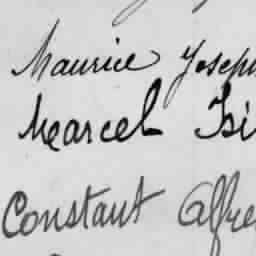 Maurice Joseph
Marcel Isi
Constant Alfre